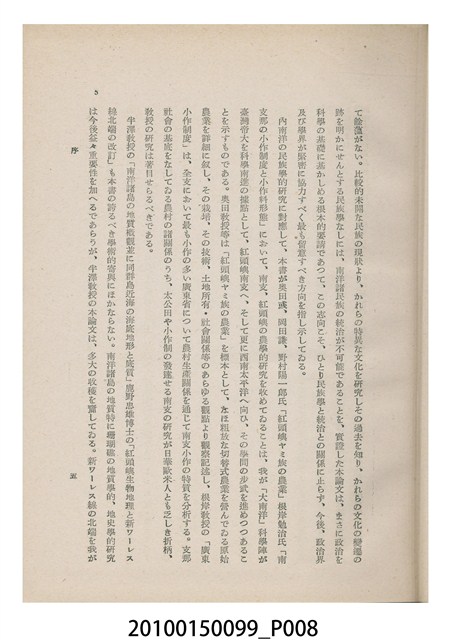 て餘蘊がない。比較的未開な民族の現狀より、かれらの特異な文化を研究しその過去を知り、かれらの文化の變遷の
跡を明かにせんとする民族學なしには、南洋諸民族の統治が不可能であることを、實證した本論文は、まさに政治を
科學の基礎に基かしめる根本的要請であつて、この志向こそ、ひとり民族學と統治との關係に止らず、今後、政治界
及び學界が緊密に協力すべく最も留意すべき方向を指し示してゐる。
內南洋の民族學的研究に對應して、本書が奧田彧、岡田謙、野村陽一郎氏「紅頭嶼ヤミ族の農業」根岸勉治氏「南
支那の小作制度と小作料形態」において、南支、紅頭嶼の農學的研究を收めてゐることは、我が「大南洋」科學陣が
臺灣帝大を科學南進の據點として、紅頭嶼南支へ、そして更に西南太平洋へ向ひ、その學問の步武を進めつつあるこ
とを示すものである。奧田敎授等は「紅頭嶼ヤミ族の農業」を標本として、なほ粗放な切替式農業を營んでゐる原始
農業を詳細に叙し、その栽培、その技術、土地所有・社會關係等のあらゆる觀點より觀察記述し、根岸敎授の「廣東
小作制度」は、全支において最も小作の多い廣東省について農村生產關係を通じて南支小作の特質を分析する。支那
社會の基底をなしてゐる農村の諸關係のうち、太公田や小作制の發達せる南支の研究が日華歐米人とも乏しき折柄、
敎授の研究は著目せらるべきである。
半澤敎授の「南洋諸島の地質槪觀並に同群島近海の海底地形と底質」鹿野忠雄博士の「紅頭嶼生物地理と新ワーレス
線北端の改訂」も本書の誇るべき學術的寄與にほかならない。南洋諸島の地質特に珊瑚礁の地質學的、地史學的硏究
は今後益々重要性を加へるであらうが、半澤敎授の本論文は、多大の收穫を齎してゐる。新ワーレス線の北端を我が
序
五
5
20100150099_P008